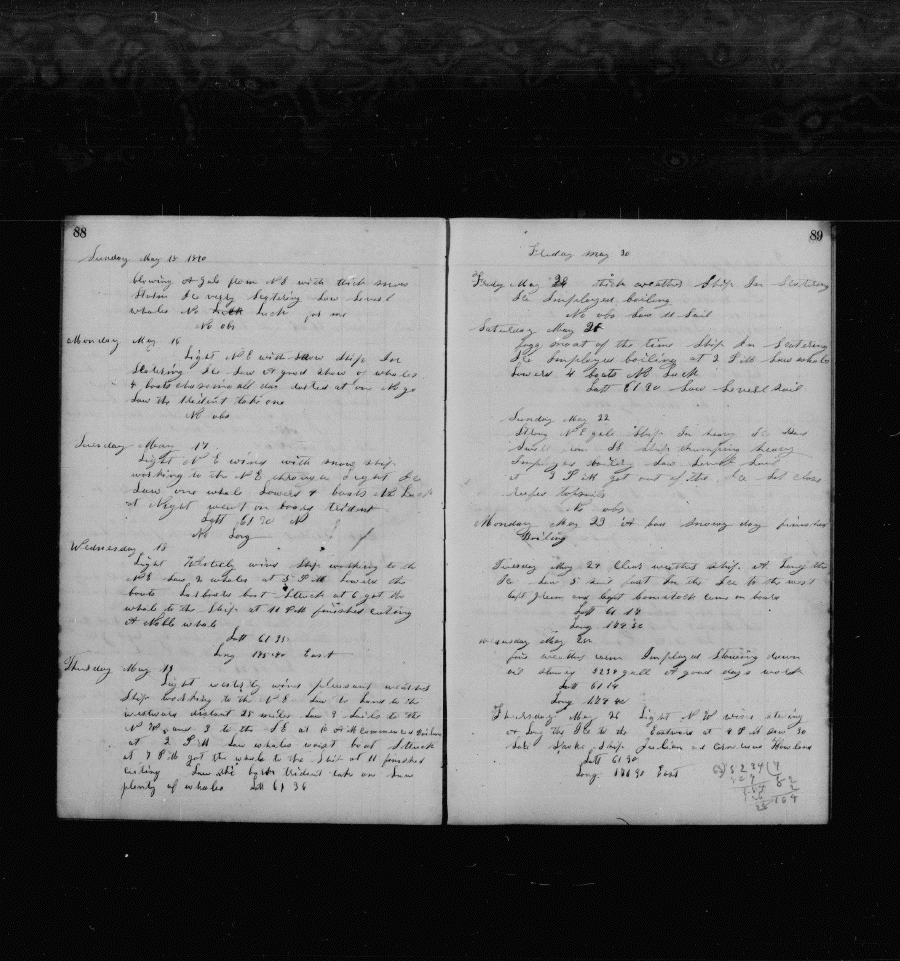 88
Sunday May 15 1870
blowing A gale from N E with thick snow
Storm Ice very Scatering Saw Severl
whales No Luck for me
No obs
Monday May 16
Light N E with Snow Ship In
Scatering Ice Saw A good show of whales
4 boats chasing all day darted at one No go
Saw the trident take one
No obs
Tuesday May 17
Light N E winds with snow ship
working to the N E through Ice
Saw one whale Lowerd 4 boats No Luck
at Night went on board trident
Latt 61 20 N
No Long
Wednesday 18
Light Westerly winds Ship working to the
N E Saw 2 whales at 5 P M Lowerd the
boats Larboard boat Struck at 6 got the
whale to the Ship at 11 P M finished cuting
A Noble whale
Latt 61 35
Long East
Thursday May 19
Light westerly winds pleasant weather
Ship working to the N E Saw to Land to the
westward distant 25 miles Saw 9 Sails to the
N W and 3 to the S E at 10 A M commenced Boiling
at 2 P M Saw whales waist boat Struck
at 7 P M got the whale to the Ship at 11 finished
cuting Saw the bark trident take one Saw
plenty of whales Latt 61 36
89
Friday May 20
Friday May 20 thick weather Ship In Scatering
Ice Imployed boiling
No obs Saw 11 Sail
Saturday May 21
fogg most of the time Ship In Scatering
Ice Imployed boiling at 2 P M Saw whales
Lowerd 4 boats No Luck
Latt 61 20 Saw Severl Sail
Sunday May 22
Strong N E gale Ship In heavy Ice
Swell on Ship thumping heavy
Imployed boiling Saw Severl Sail
at P M got out of the Ice Set close
reefed topsails
No obs
Monday May 23 A bad snowey day finished
Boiling
Tuesday May 24 Clear weather ship A Long the
Ice Saw 5 sail fast In the Ice to the west
capt Green and capt Comstock came on board
Latt 61 14
Long
May 25
fine weather Imployed Stowing down
oil stowed gall A good days work
Latt 61 14
Long
Thursday May 26 Light N W winds steering
A Long the Ice to the Eastward at 4 P M Saw 30
Sail Spoke Ship Julian and Howland
Latt 61 30
Long East